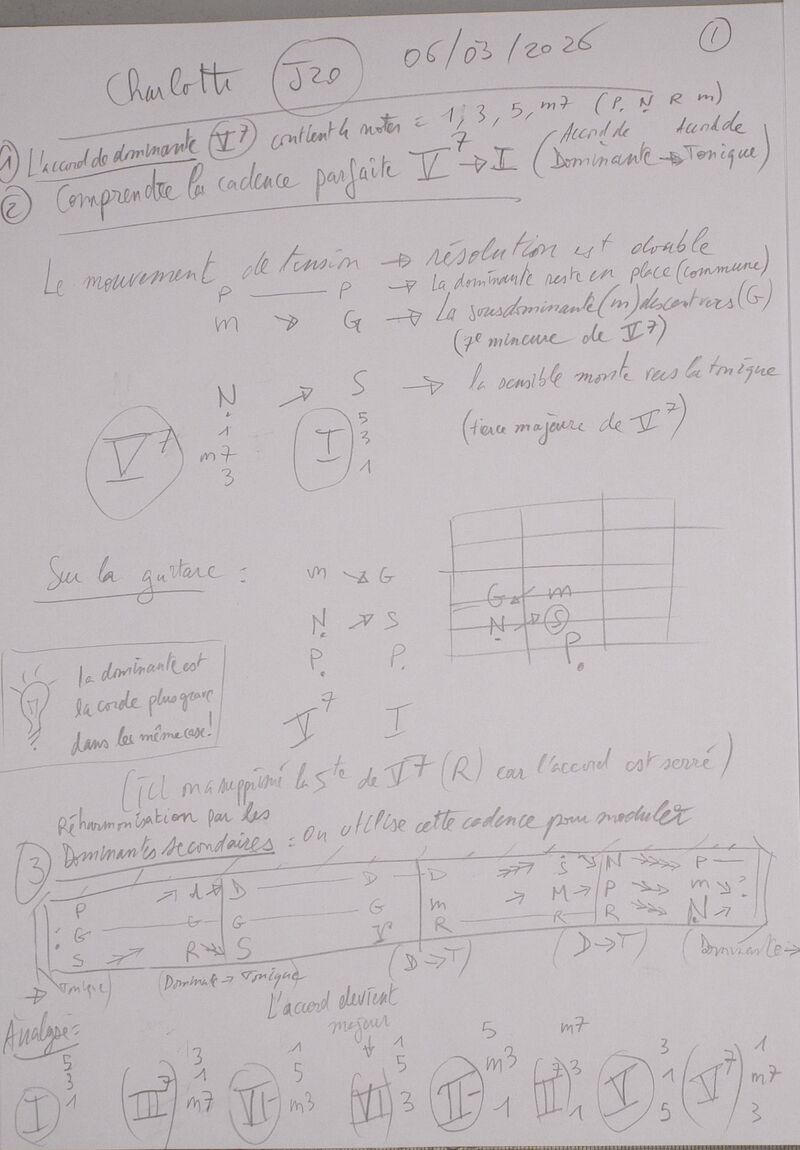 Charlotte J20 06/03/2026 1
1 L'accord de dominante V7 contient les notes = 1, 3, 5, m7 (P. Ṇ R m)
2 Comprendre la cadence parfaite V7 → I (Accord de Dominante → Accord de Tonique)
Le mouvement de tension → résolution est double
P — P → la dominante reste en place (commune)
m ↘ G → La sousdominante (m) descend vers (G)
(7e mineure de V7)
Ṇ ↗ S → la sensible monte vers la tonique
(tierce majeure de V7)
V7 1 m7 3
I 5 3 1
Sur la guitare :
m ↘ G
Ṇ → S
P. P.
V7 I
G ↙ m
Ṇ → S
P.
la dominante est
la corde plus grave
dans les même case!
(Ici on a supprimé la 5te de V7 (R) car l'accord est serré)
3 Réharmonisation par les
Dominantes secondaires = On utilise cette cadence pour moduler
P → d → D — D — D →→→ Ṡ ↘ N →→→ P —
G — G G — G m → M → P →→→ m ↘ ?
S →→ R →→ S R — R R →→→ Ṇ ↗
→ Tonique) (Dominante → Tonique) (D → T) (D → T) (Dominante →
L'accord devient
majeur
Analyse =
I 5 3 1
(III7) 3 1 m7
VI- 1 5 m3
(VI) 1 5 3
II- 5 m3 1
(II7) m7 3 1
V 3 1 5
(V7) 1 m7 3